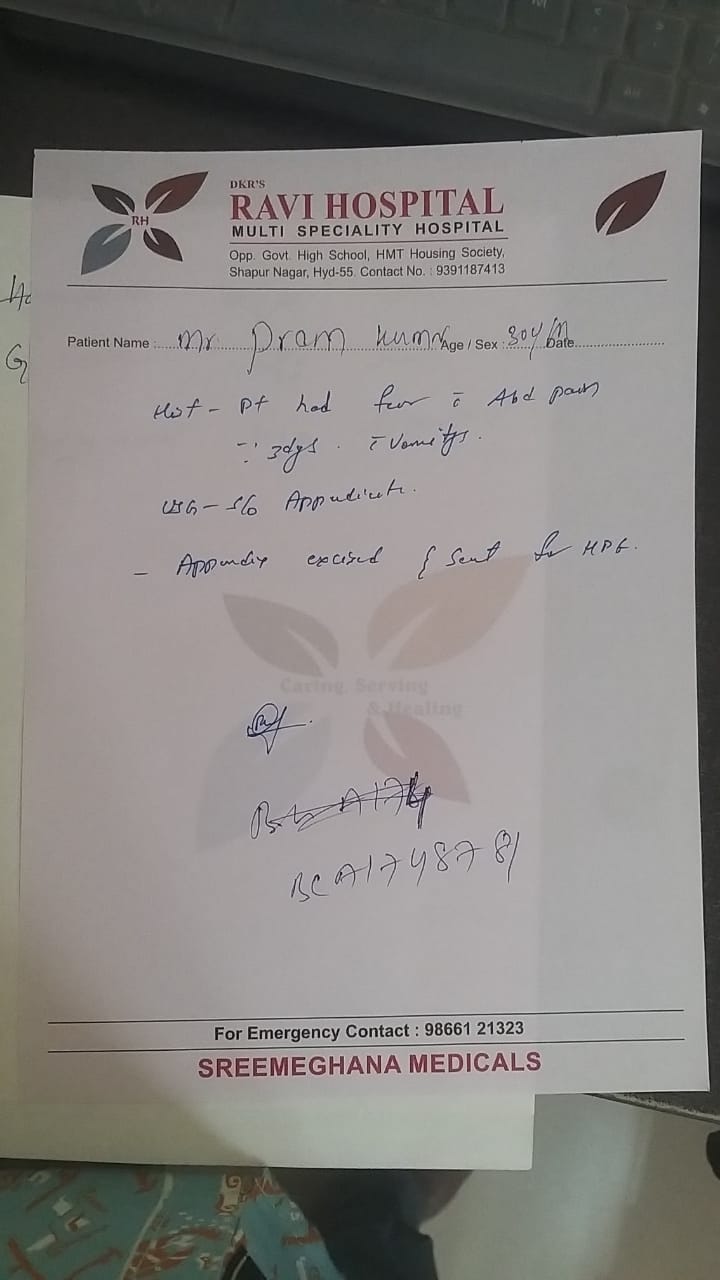 DKR'S
RH
RAVI HOSPITAL
MULTI SPECIALITY HOSPITAL
Opp. Govt. High School, HMT Housing Society,
Shapur Nagar, Hyd-55. Contact No. : 9391187413
Patient Name : Mr. Pram Kumar Age / Sex : 30Y/M Date
Hist - Pt had fever c̄ Abd pain
3dys. c̄ Vomitgs.
USG - S/o Appendicit.
- Appendix excised & Sent for HPE.
Caring, Serving
& Healing
BCA1748781
For Emergency Contact : 98661 21323
SREEMEGHANA MEDICALS